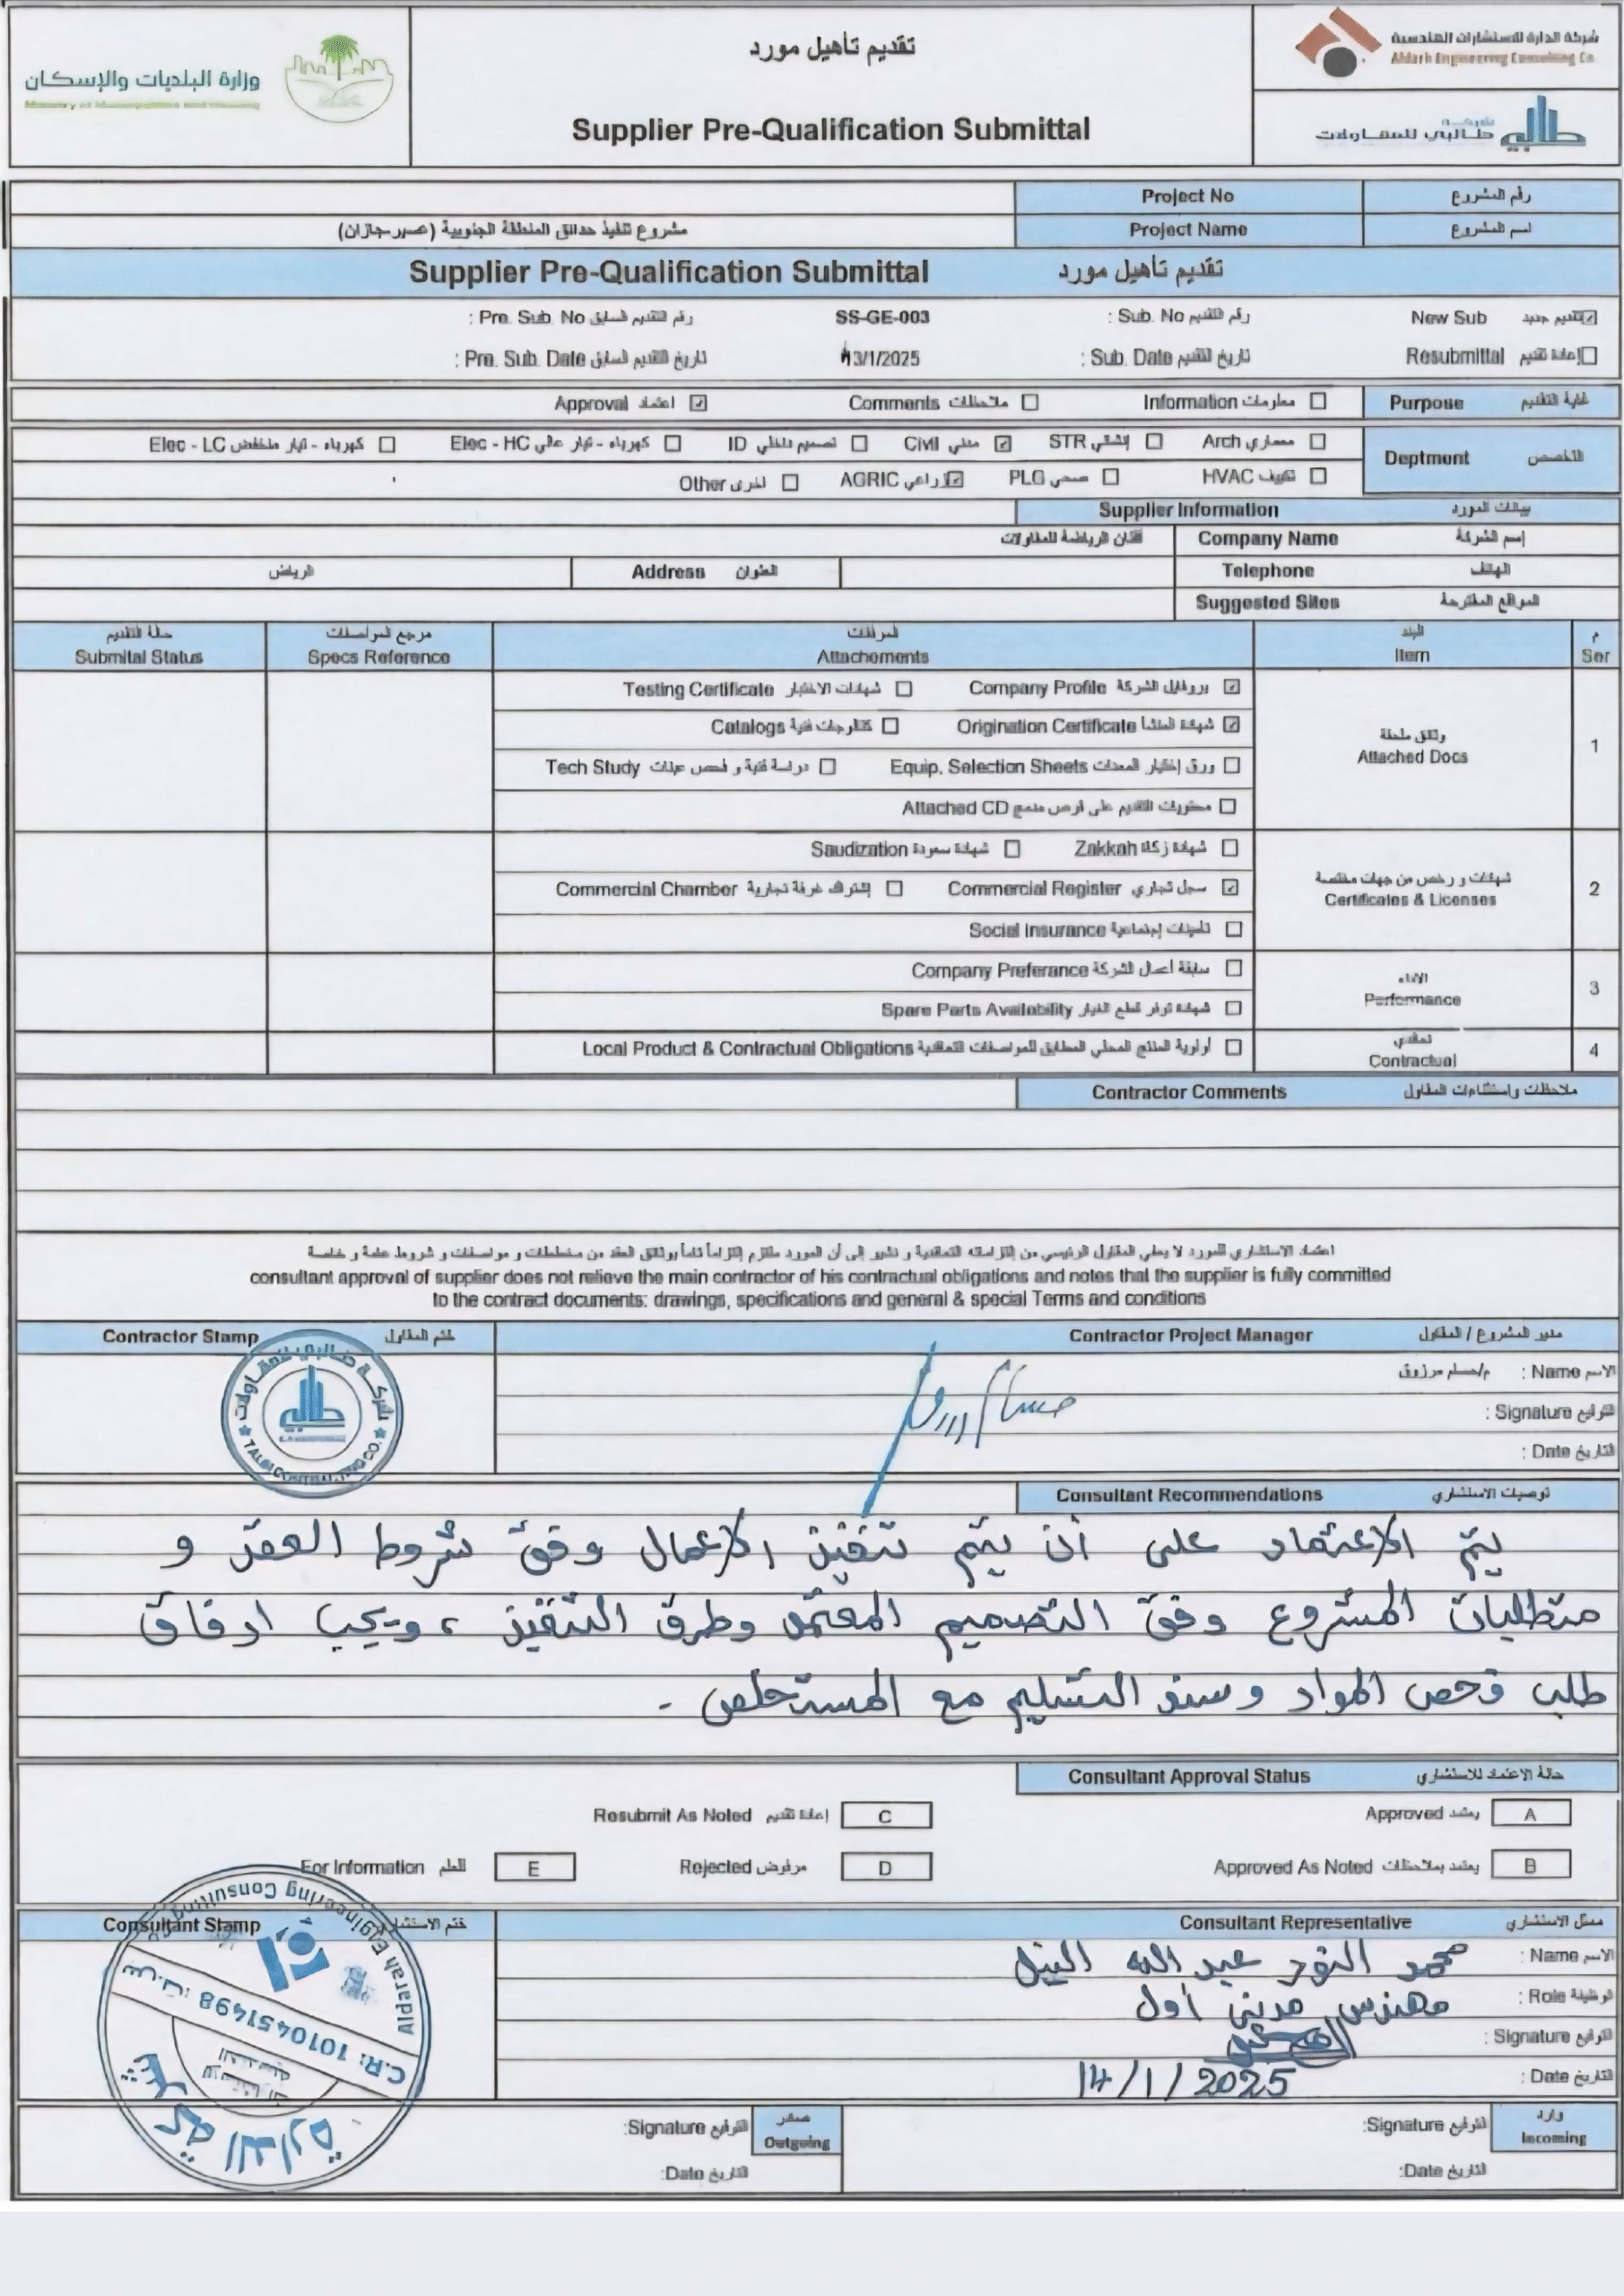 وزارة البلديات والإسكان
تقديم تأهيل مورد
Supplier Pre-Qualification Submittal
شركة الدارة للاستشارات الهندسية
Aldarh Engineering Consulting Co.
شركة
طالبي للمقاولات
Project No رقم المشروع
مشروع تنفيذ حدائق المنطقة الجنوبية (عسير-جازان) Project Name اسم المشروع
Supplier Pre-Qualification Submittal تقديم تأهيل مورد
تقديم جديد New Sub رقم التقديم Sub. No : SS-GE-003 رقم التقديم السابق Pre. Sub. No :
إعادة تقديم Resubmittal تاريخ التقديم Sub. Date : 13/1/2025 تاريخ التقديم السابق Pre. Sub. Date :
غاية التقديم Purpose معلومات Information ملاحظات Comments اعتماد Approval
التخصص Deptment
معماري Arch إنشائي STR مدني Civil تصميم داخلي ID كهرباء - تيار عالي Elec - HC كهرباء - تيار منخفض Elec - LC
تكييف HVAC صحي PLG زراعي AGRIC اخرى Other
بيانات المورد Supplier Information
إسم الشركة Company Name الرياضة للمقاولات
الهاتف Telephone العنوان Address الرياض
المواقع المقترحة Suggested Sites
م البند المرفقات مرجع المواصفات حالة التقديم
Ser Item Attachements Specs Reference Submital Status
1 وثائق ملحقة Attached Docs
بروفايل الشركة Company Profile شهادات الاختبار Testing Certificate
شهادة المنشأ Origination Certificate كتالوجات فنية Catalogs
ورق إختيار المعدات Equip. Selection Sheets دراسة فنية و فحص عينات Tech Study
محتويات التقديم على قرص مدمج Attached CD
2 شهادات و رخص من جهات مختصة Certificates & Licenses
شهادة زكاة Zakkah شهادة سعودة Saudization
سجل تجاري Commercial Register إشتراك غرفة تجارية Commercial Chamber
تأمينات إجتماعية Social Insurance
3 الأداء Performance
سابقة أعمال الشركة Company Preferance
شهادة توفر قطع الغيار Spare Parts Availability
4 تعاقدي Contractual
أولوية المنتج المحلي المطابق للمواصفات التعاقدية Local Product & Contractual Obligations
ملاحظات واستثناءات المقاول Contractor Comments
اعتماد الاستشاري للمورد لا يعفي المقاول الرئيسي من إلتزاماته التعاقدية و نشير إلى أن المورد ملتزم إلتزاماً تاماً بوثائق العقد من مخططات و مواصفات و شروط عامة و خاصة
consultant approval of supplier does not relieve the main contractor of his contractual obligations and notes that the supplier is fully committed
to the contract documents: drawings, specifications and general & special Terms and conditions
مدير المشروع / المقاول Contractor Project Manager ختم المقاول Contractor Stamp
الاسم Name : م/حسام مرزوق
التوقيع Signature :
التاريخ Date :
شركة طالبي للمقاولات
TALBI CONTRACTING CO.
توصيات الاستشاري Consultant Recommendations
يتم الاعتماد على أن يتم تنفيذ الاعمال وفق شروط العقد و
متطلبات المشروع وفق التصميم المعتمد وطرق التنفيذ ، ويجب ارفاق
طلب فحص المواد وسند التسليم مع المستخلص .
حالة الاعتماد للاستشاري Consultant Approval Status
A يعتمد Approved C إعادة تقديم Resubmit As Noted
B يعتمد بملاحظات Approved As Noted D مرفوض Rejected E للعلم For Information
ممثل الاستشاري Consultant Representative ختم الاستشاري Consultant Stamp
الاسم Name : محمد النور عبد الله النيل
الوظيفة Role : مهندس مدني أول
التوقيع Signature :
التاريخ Date : 14/1/2025
Aldarah Engineering Consulting
C.R: 1010451498 س.ت:
شركة الدارة
وارد Incoming التوقيع Signature: صادر Outgoing التوقيع Signature:
التاريخ Date: التاريخ Date: